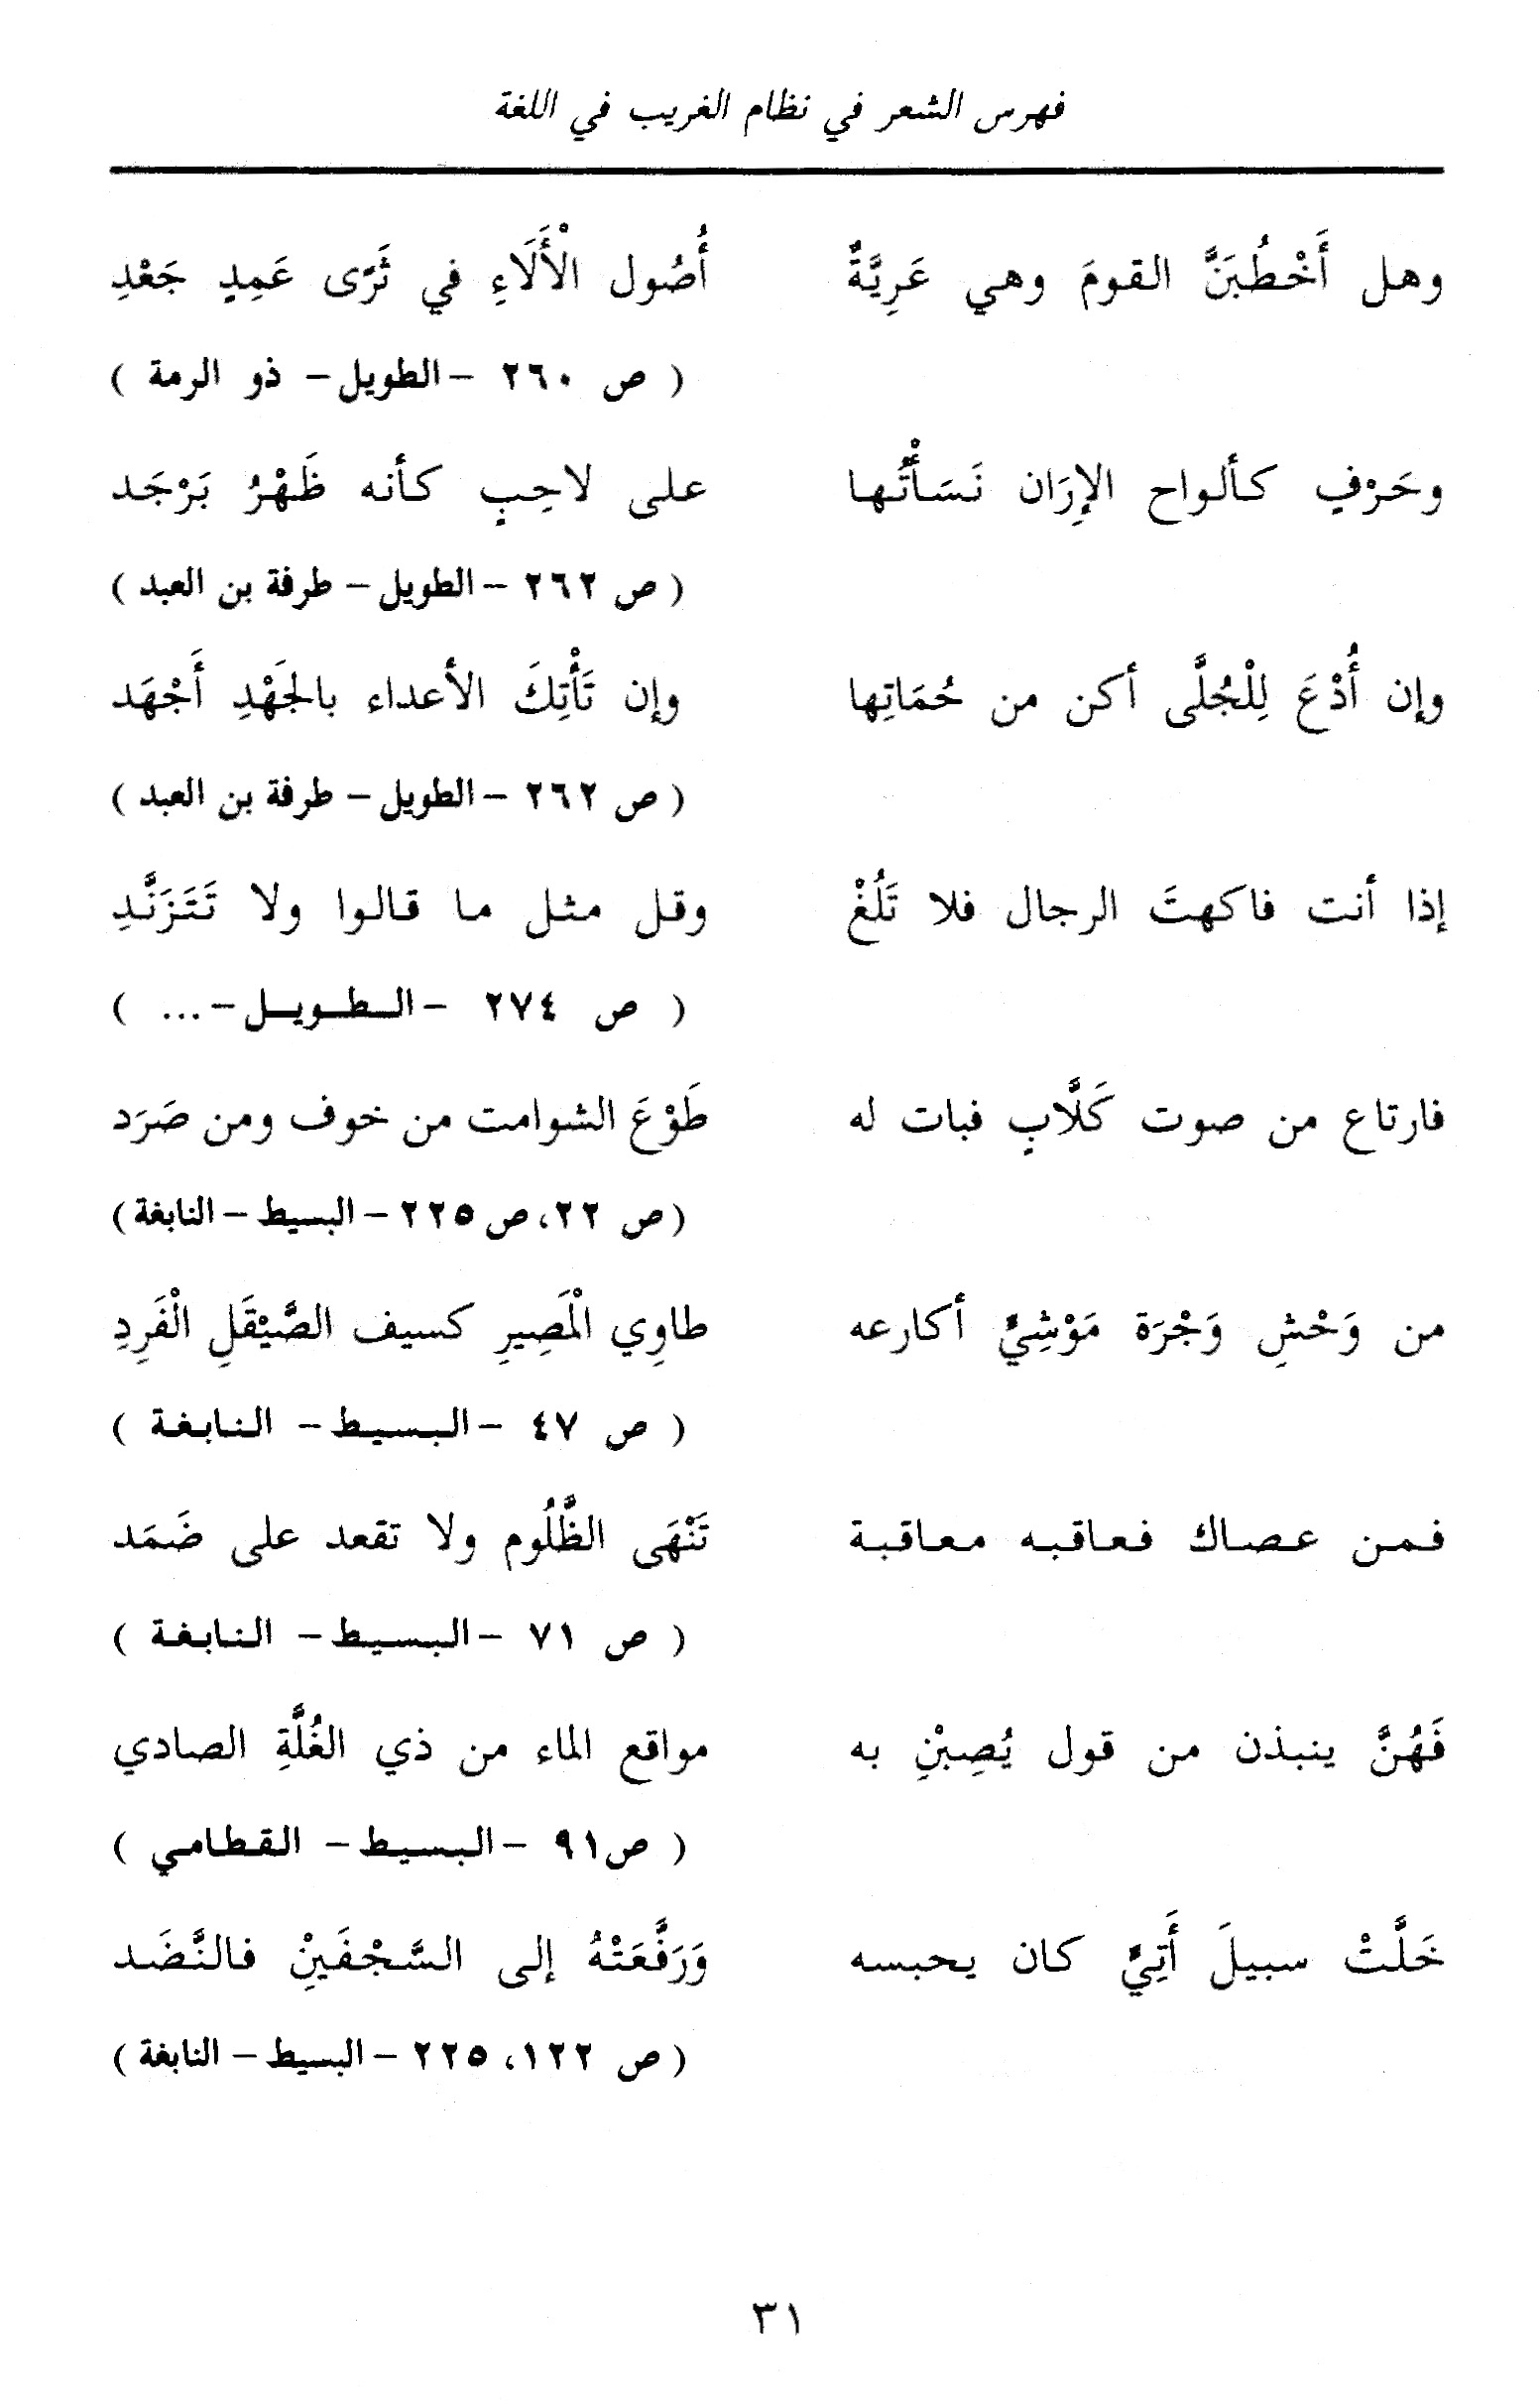 فهرس الشعر في نظام الغريب في اللغة
وهل أَخْطُبَنَّ القومَ وهي عَرِيَّةٌ أُصُول الْأَلَاءِ في ثَرًى عَمِدٍ جَعْدِ
( ص ٢٦٠ -الطويل- ذو الرمة )
وحَرْفٍ كألواح الإِرَان نَسَأْتُها على لاحِبٍ كأنه ظَهْرُ بَرْجَد
( ص ٢٦٢ -الطويل- طرفة بن العبد )
وإن أُدْعَ لِلْجُلَّى أكن من حُمَاتِها وإن تَأْتِكَ الأعداء بالجَهْدِ أَجْهَد
( ص ٢٦٢ -الطويل- طرفة بن العبد )
إذا أنت فاكهتَ الرجال فلا تَلُغْ وقل مثل ما قالوا ولا تَتَزَنَّدِ
( ص ٢٧٤ -الطويل-... )
فارتاع من صوت كَلَّابٍ فبات له طَوْعَ الشوامت من خوف ومن صَرَد
(ص ٢٢، ص ٢٢٥ -البسيط -النابغة)
من وَحْشِ وَجْرَة مَوْشِيٍّ أكارعه طاوِي الْمَصِيرِ كسيف الصَّيْقَلِ الْفَرِدِ
( ص ٤٧ -البسيط- النابغة )
فمن عصاك فعاقبه معاقبة تَنْهَى الظَّلُوم ولا تقعد على ضَمَد
( ص ٧١ -البسيط- النابغة )
فَهُنَّ ينبذن من قول يُصِبْنِ به مواقع الماء من ذي الغُلَّةِ الصادي
( ص٩١ -البسيط- القطامي )
خَلَّتْ سبيلَ أَتِيٍّ كان يحبسه وَرَفَّعَتْهُ إلى السَّجْفَيْنِ فالنَّضَد
( ص ١٢٢، ٢٢٥ -البسيط- النابغة )
٣١